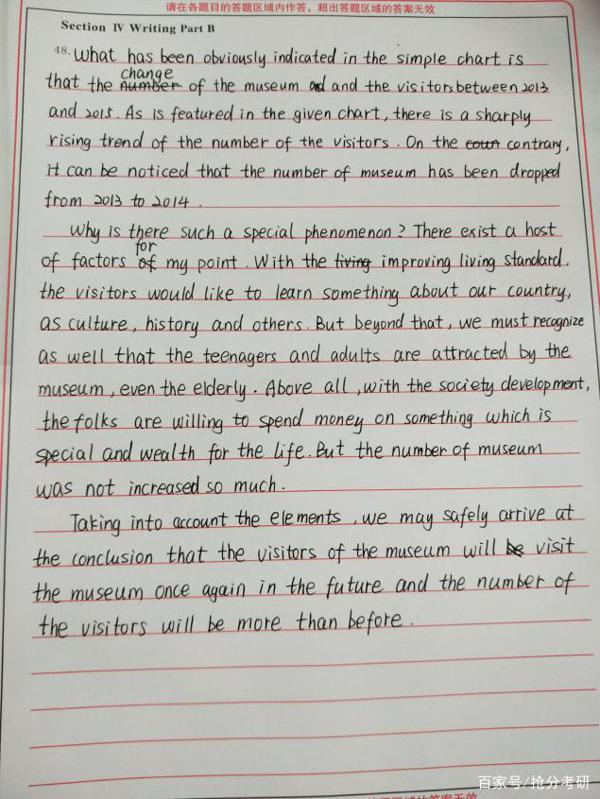 请在各题目的答题区域内作答，超出答题区域的答案无效
Section IV Writing Part B
48. What has been obviously indicated in the simple chart is
change
that the number of the museum and and the visitors between 2013
and 2015. As is featured in the given chart, there is a sharply
rising trend of the number of the visitors. On the coun contrary,
it can be noticed that the number of museum has been dropped
from 2013 to 2014.
Why is there such a special phenomenon? There exist a host
for
of factors of my point. With the living improving living standard.
the visitors would like to learn something about our country,
as culture, history and others. But beyond that, we must recognize
as well that the teenagers and adults are attracted by the
museum, even the elderly. Above all, with the society development,
the folks are willing to spend money on something which is
special and wealth for the life. But the number of museum
was not increased so much.
Taking into account the elements, we may safely arrive at
the conclusion that the visitors of the museum will be visit
the museum once again in the future and the number of
the visitors will be more than before.
百家号/抢分考研
答题区域的答案无效